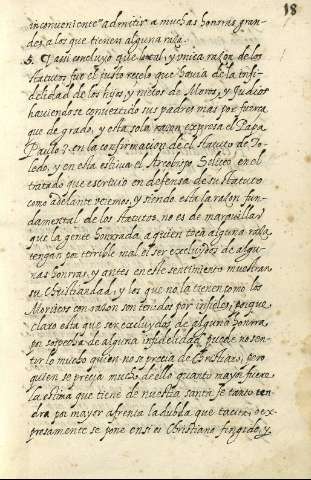 18
inconueniente admitir a muchas honras gran-
des a los que tienen alguna raza.
5. Y assi concluyo que la real, y vnica razon de los
statutos fue el justo recelo que hauia de la infi-
delidad de los hijos, y nietos de Moros, y Judios
hauiendose conuertido sus padres mas por fuerça
que de grado, y esta sola razon expresa el Papa
Paulo 3. en la confirmacion de el statuto de To-
ledo, y en esta estriua el Arcobispo Siliceo en el
tratado que escriuio en defensa de su statuto
como adelante veremos, y siendo esta la razon fun-
damental de los statutos, no es de marauillar
que la gente honrada, a quien toca alguna raza
tengan por terrible mal el ser excluydos de algu-
nas honras, y antes en este sentimiento muestran
su Christiandad, y los que no la tienen como los
Moriscos con razon son tenidos por infieles, porque
claro esta que ser excluydos de alguna honra,
por sospecha de alguna infidelidad, puede no sen-
tirlo mucho quien no se precia de Christiano, pero
quien se precia mucho de ello quanto mayor fuere
la estima que tiene de nuestra santa fe tanto ten
dra por mayor afrenta la dubda que tacita, o ex-
presamente se pone en si es Christiano fingido, y